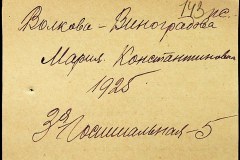 143 рс.
Волкова-Виноградова
Мария Константиновна
1925
Госпитальная-5